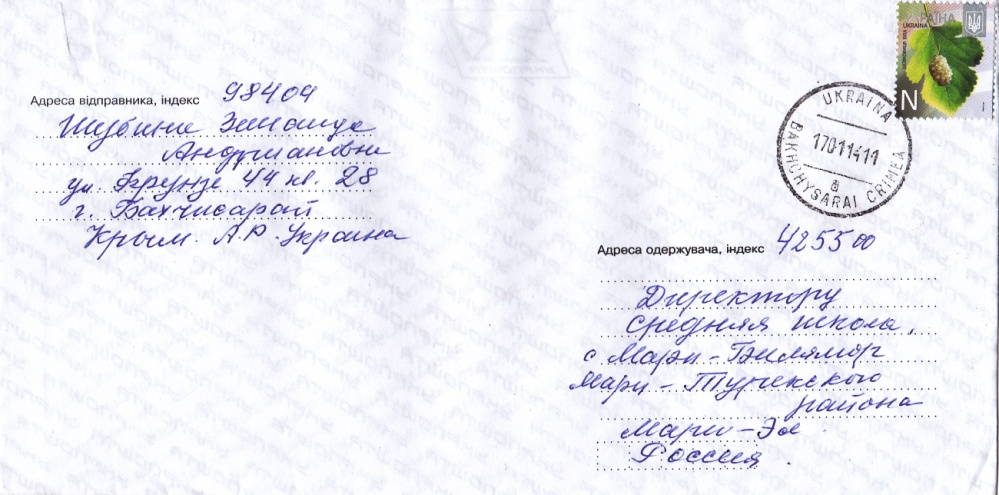 Адреса відправника, індекс 98409
Шубина
Андриановны
ул. Фрунзе 44 кв. 28
г. Бахчисарай
Крым. А.Р. Украина
УКРАЇНА
UKRAINA
N
UKRAINA
17011411
а
BAKHCHYSARAI CRIMEA
Адреса одержувача, індекс 425500
Директору
средняя школа,
с Мари-Билямор
Мари-Турекского
района
Мари-Эл
Россия.